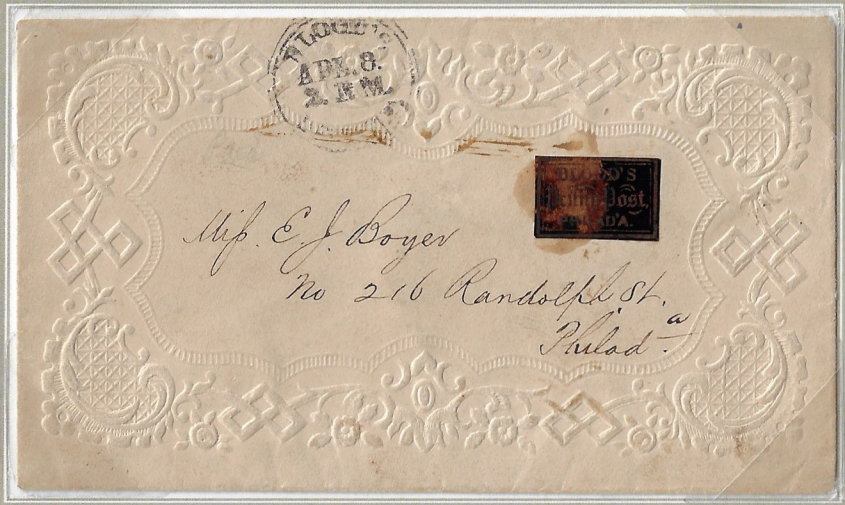 BLOOD'S
APR. 8.
2 P M
BLOOD'S
Penny Post,
PHILAD'A.
Miſs. E. J. Boyer
No 216 Randolph St.
Philad.ª